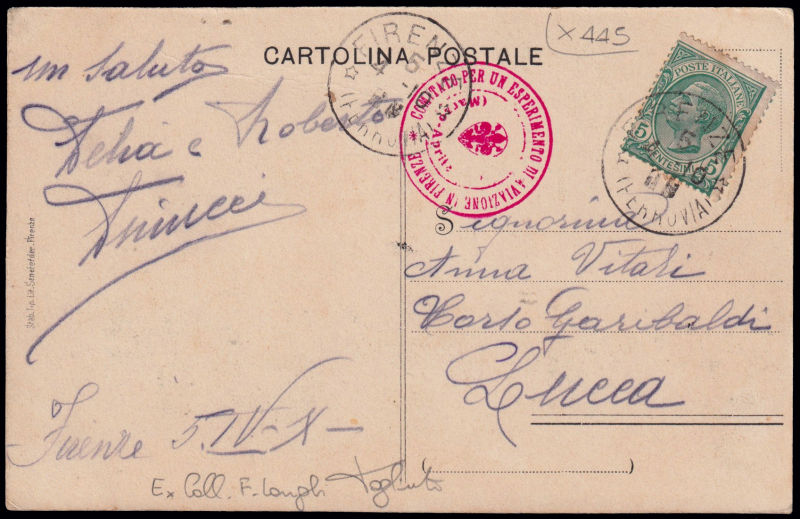 x 445
CARTOLINA POSTALE
POSTE ITALIANE
5 CENTESIMI 5
FIRENZE
(FERROVIA)
COMITATO PER UN ESPERIMENTO DI AVIAZIONE IN FIRENZE
(Marzo)
Aprile
un saluto
Delia e Roberto
Signorina
Anna Vitali
Corso Garibaldi
Lucca
Stab. Tip. Lit. Senefelder. Firenze
Firenze 5. IV - X -
Ex Coll. F. Longhi